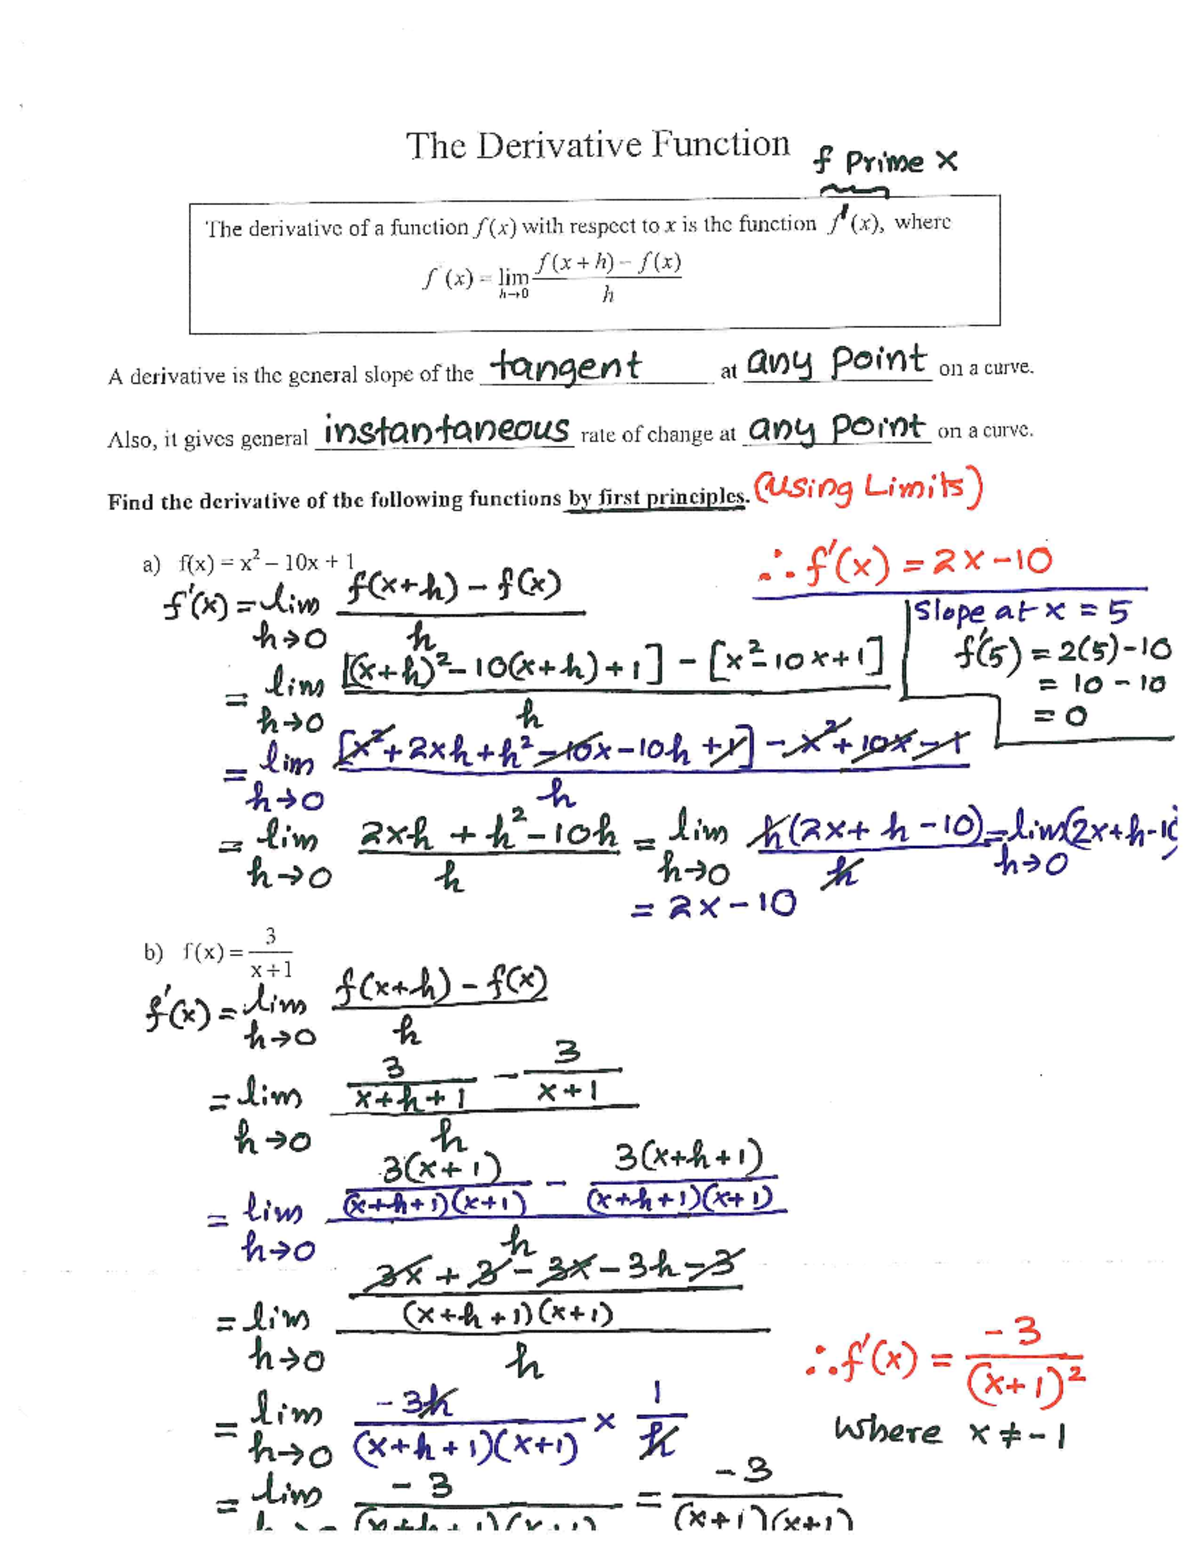 The Derivative Function
f Prime x
The derivative of a function f(x) with respect to x is the function f'(x), where
f (x) = lim h→0 f(x + h) − f(x) / h
A derivative is the general slope of the tangent at any point on a curve.
Also, it gives general instantaneous rate of change at any point on a curve.
Find the derivative of the following functions by first principles. (using Limits)
a) f(x) = x² − 10x + 1
∴ f'(x) = 2x − 10
f'(x) = lim h→0 f(x+h) − f(x) / h
Slope at x = 5
f'(5) = 2(5) − 10
= 10 − 10
= 0
= lim h→0 [(x+h)² − 10(x+h) + 1] − [x² − 10x + 1] / h
= lim h→0 [x² + 2xh + h² − 10x − 10h + 1] − x² + 10x − 1 / h
= lim h→0 2xh + h² − 10h / h = lim h→0 h(2x + h − 10) / h = lim h→0 (2x + h − 10)
= 2x − 10
b) f(x) = 3 / x+1
f'(x) = lim h→0 f(x+h) − f(x) / h
= lim h→0 3 / x+h+1 − 3 / x+1 / h
= lim h→0 3(x+1) / (x+h+1)(x+1) − 3(x+h+1) / (x+h+1)(x+1) / h
= lim h→0 3x + 3 − 3x − 3h − 3 / (x+h+1)(x+1) / h
∴ f'(x) = −3 / (x+1)²
where x ≠ −1
= lim h→0 −3h / (x+h+1)(x+1) × 1 / h
= lim −3 / (x+h+1)(x+1) = −3 / (x+1)(x+1)